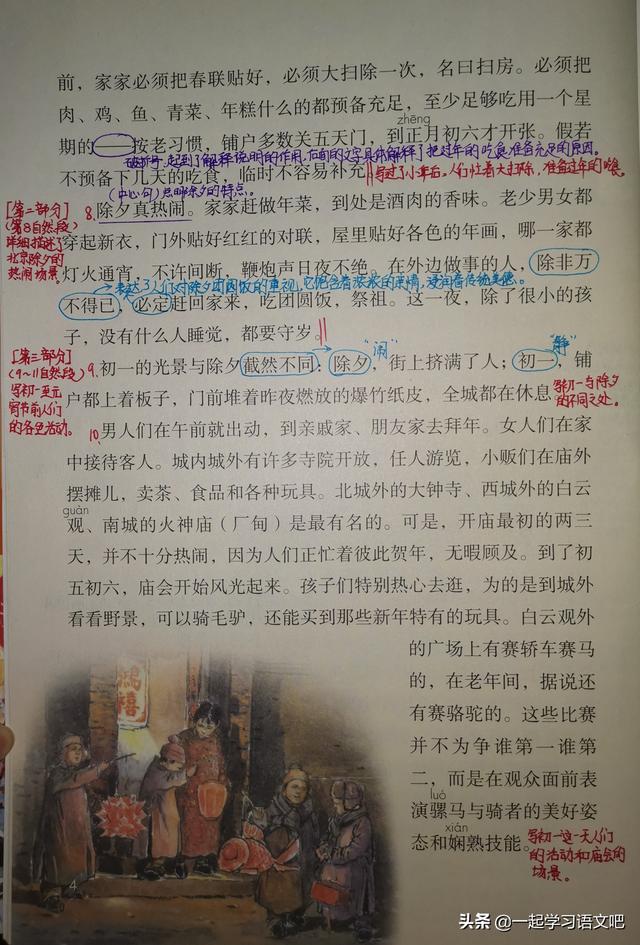 前，家家必须把春联贴好，必须大扫除一次，名曰扫房。必须把
肉、鸡、鱼、青菜、年糕什么的都预备充足，至少足够吃用一个星
zhēng
期的——按老习惯，铺户多数关五天门，到正月初六才开张。假若
破折号，起到了解释说明的作用，后面的文字具体解释了把过年的吃食准备充足的原因。
不预备下几天的吃食，临时不容易补充。
写过了小年后，人们忙着大扫除，准备过年的吃食。
(中心句)点明除夕的特点。
[第二部分]
(第8自然段)
详细描述了
北京除夕的
热闹场景。
8.除夕真热闹。家家赶做年菜，到处是酒肉的香味。老少男女都
穿起新衣，门外贴好红红的对联，屋里贴好各色的年画，哪一家都
灯火通宵，不许间断，鞭炮声日夜不绝。在外边做事的人，除非万
表达了人们对除夕团圆饭的重视，它饱含着浓浓的亲情，浸润着传统美德。
不得已，必定赶回家来，吃团圆饭，祭祖。这一夜，除了很小的孩
子，没有什么人睡觉，都要守岁。
[第三部分]
(9~11自然段)
写初一至元
宵节前人们
的各色活动。
"闹"
"静"
9.初一的光景与除夕截然不同：除夕，街上挤满了人；初一，铺
户都上着板子，门前堆着昨夜燃放的爆竹纸皮，全城都在休息。
写初一与除夕
的不同之处。
10.男人们在午前就出动，到亲戚家、朋友家去拜年。女人们在家
中接待客人。城内城外有许多寺院开放，任人游览，小贩们在庙外
摆摊儿，卖茶、食品和各种玩具。北城外的大钟寺、西城外的白云
guàn
观、南城的火神庙（厂甸）是最有名的。可是，开庙最初的两三
天，并不十分热闹，因为人们正忙着彼此贺年，无暇顾及。到了初
五初六，庙会开始风光起来。孩子们特别热心去逛，为的是到城外
看看野景，可以骑毛驴，还能买到那些新年特有的玩具。白云观外
的广场上有赛轿车赛马
的，在老年间，据说还
有赛骆驼的。这些比赛
并不为争谁第一谁第
二，而是在观众面前表
luó
演骡马与骑者的美好姿
xián
态和娴熟技能。
写初一这一天人们
的活动和庙会的
场景。
鸿禧
4
头条 @一起学习语文吧